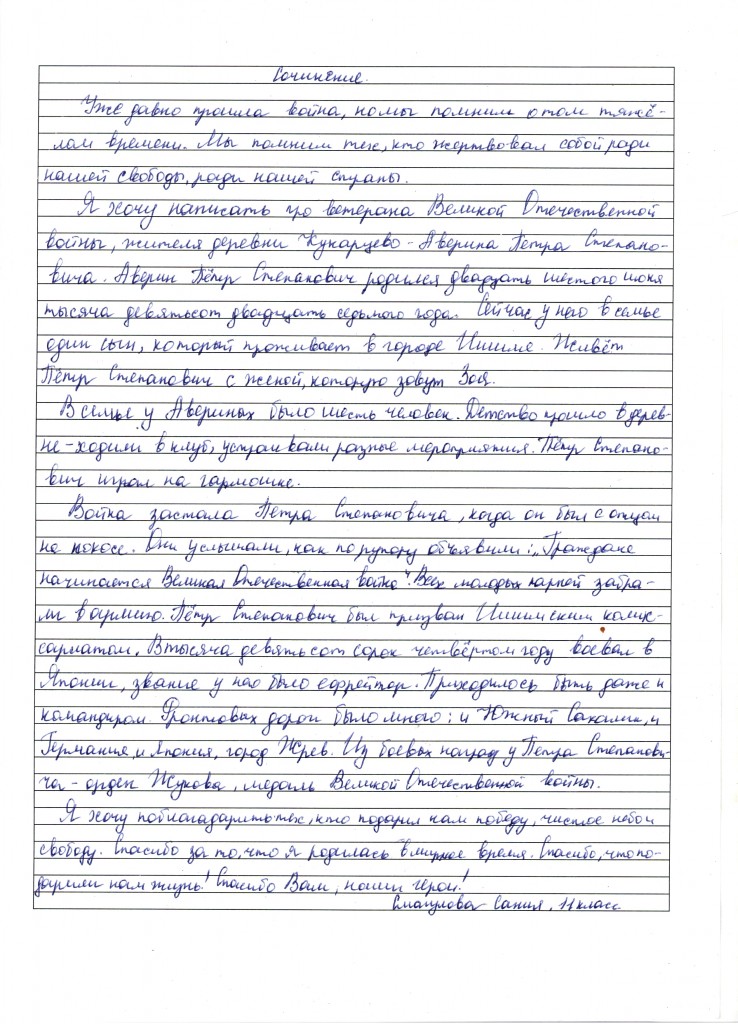 Сочинение.
Уже давно прошла война, но мы помним о том тяжё-
лом времени. Мы помним тех, кто жертвовал собой ради
нашей свободы, ради нашей страны.
Я хочу написать про ветерана Великой Отечественной
войны, жителя деревни Кукарцево - Аверина Петра Степано-
вича. Аверин Пётр Степанович родился двадцать шестого июня
тысяча девятьсот двадцать седьмого года. Сейчас у него в семье
один сын, который проживает в городе Ишиме. Живёт
Пётр Степанович с женой, которую зовут Зоя.
В семье у Авериных было шесть человек. Детство прошло в дерев-
не - ходили в клуб, устраивали разные мероприятия. Пётр Степано-
вич играл на гармошке.
Война застала Петра Степановича, когда он был с отцом
на покосе. Они услышали, как по рупору объявили: „Граждане
начинается Великая Отечественная война". Всех молодых парней забра-
ли в армию. Пётр Степанович был призван Ишимским комис-
сариатом. В тысяча девятьсот сорок четвёртом году воевал в
Японии, звание у нас было ефрейтор. Приходилось быть даже и
командиром. Фронтовых дорог было много: и Южный Сахалин, и
Германия, и Япония, город Жрев. Из боевых наград у Петра Степанови-
ча - орден Жукова, медаль Великой Отечественной войны.
Я хочу поблагадарить тех, кто подарил нам победу, чистое небо и
свободу. Спасибо за то, что я родилась в мирное время. Спасибо, что по-
дарили нам жизнь! Спасибо Вам, наши герои!
Смагулова Сания, 11 класс